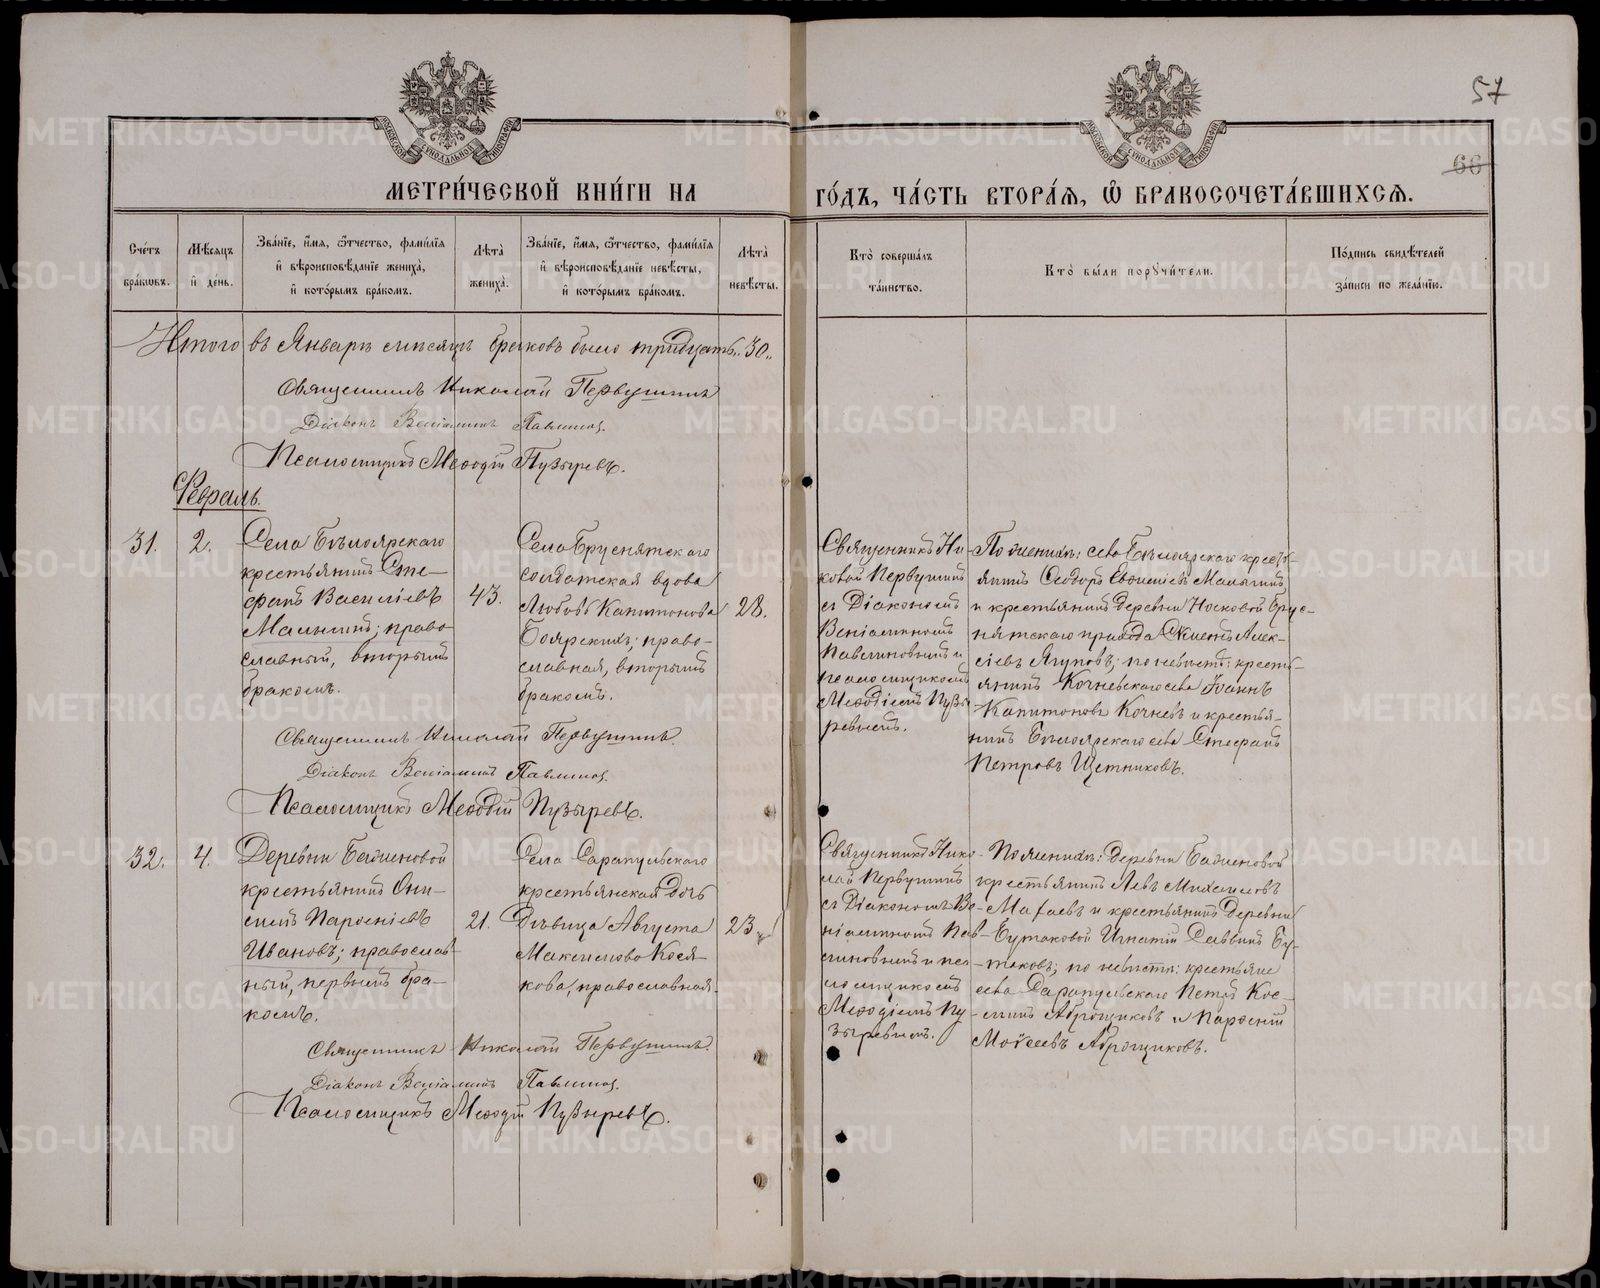 57
66
МОСКОВСКОЙ СѴНОДАЛЬНОЙ ТИПОГРАФІИ
МОСКОВСКОЙ СѴНОДАЛЬНОЙ ТИПОГРАФІИ
МЕТРИ́ЧЕСКОЙ КНИ́ГИ НА
ГО́ДЪ, ЧА́СТЬ ВТОРА́Я, Ѽ БРАКОСОЧЕТА́ВШИХСЯ.
Сче́тъ бра́кѡвъ.
Мѣ́сяцъ и҆ де́нь.
Зва́нїе, и҆́мя, ѻ҆́тчество, фами́лїя и҆ вѣроисповѣ́данїе жениха̀, и҆ кото́рымъ бра́комъ.
Лѣта̀ жениха̀.
Зва́нїе, и҆́мя, ѻ҆́тчество, фами́лїя и҆ вѣроисповѣ́данїе невѣ́сты, и҆ кото́рымъ бра́комъ.
Лѣта̀ невѣ́сты.
Кто̀ соверша́лъ та́инство.
Кто̀ бы́ли порꙋчи́тели.
По́дпись свидѣ́телей за́писи по жела́нїю.
Итого въ Январѣ мѣсяцѣ браковъ было тридцать „30„
Священникъ Николай Первушинъ
Діаконъ Веніаминъ Павлинов.
Псаломщикъ Меѳодій Пузыревъ.
Февраль.
31.
2.
Села Бѣлоярскаго
крестьянинъ Сте-
фанъ Василіевъ
Малыгинъ; право-
славный, вторымъ
бракомъ.
43.
Села Бруснятскаго
солдатская вдова
Любовь Капитонова
Боярскихъ; право-
славная, вторымъ
бракомъ.
28.
Священникъ Ни-
колай Первушинъ
съ Діакономъ
Веніаминомъ
Павлиновымъ и
псаломщикомъ
Меѳодіемъ Пузы-
ревымъ.
По женихѣ: села Бѣлоярскаго кресть-
янинъ Ѳеодоръ Евѳиміевъ Малыгинъ
и крестьянинъ деревни Носковой Брус-
нятскаго прихода Алек-
сіевъ Ягуповъ; по невѣстѣ: кресть-
янинъ Кочневскаго села Іоаннъ
Капитоновъ Кочневъ и крестья-
нинъ Бѣлоярскаго села Стефанъ
Петровъ Щетниковъ.
Священникъ Николай Первушинъ.
Діаконъ Веніаминъ Павлинов.
Псаломщикъ Меѳодій Пузыревъ.
32.
4.
Деревни Баженовой
крестьянинъ Они-
симъ Парѳеніевъ
Ивановъ; православ-
ный, первымъ бра-
комъ.
21.
Села Сарапульскаго
крестьянская дочь
Дѣвица Августа
Максимова Кося-
кова, православная.
23
Священникъ Нико-
лай Первушинъ
съ Діакономъ Ве-
ніаминомъ Пав-
линовымъ и пса-
ломщикомъ
Меѳодіемъ Пу-
зыревымъ.
По женихѣ: деревни Баженовой
крестьянинъ Левъ Михаиловъ
и крестьянинъ деревни
Бутаковой Игнатій Саввинъ Бу-
таковъ; по невѣстѣ: крестьяне
села Сарапульскаго Петръ Кос-
минъ Аброщиковъ и Парѳеній
Моѵсеевъ Аброщиковъ.
Священникъ Николай Первушинъ.
Діаконъ Веніаминъ Павлинов.
Псаломщикъ Меѳодій Пузыревъ.
METRIKI.GASO-URAL.RU